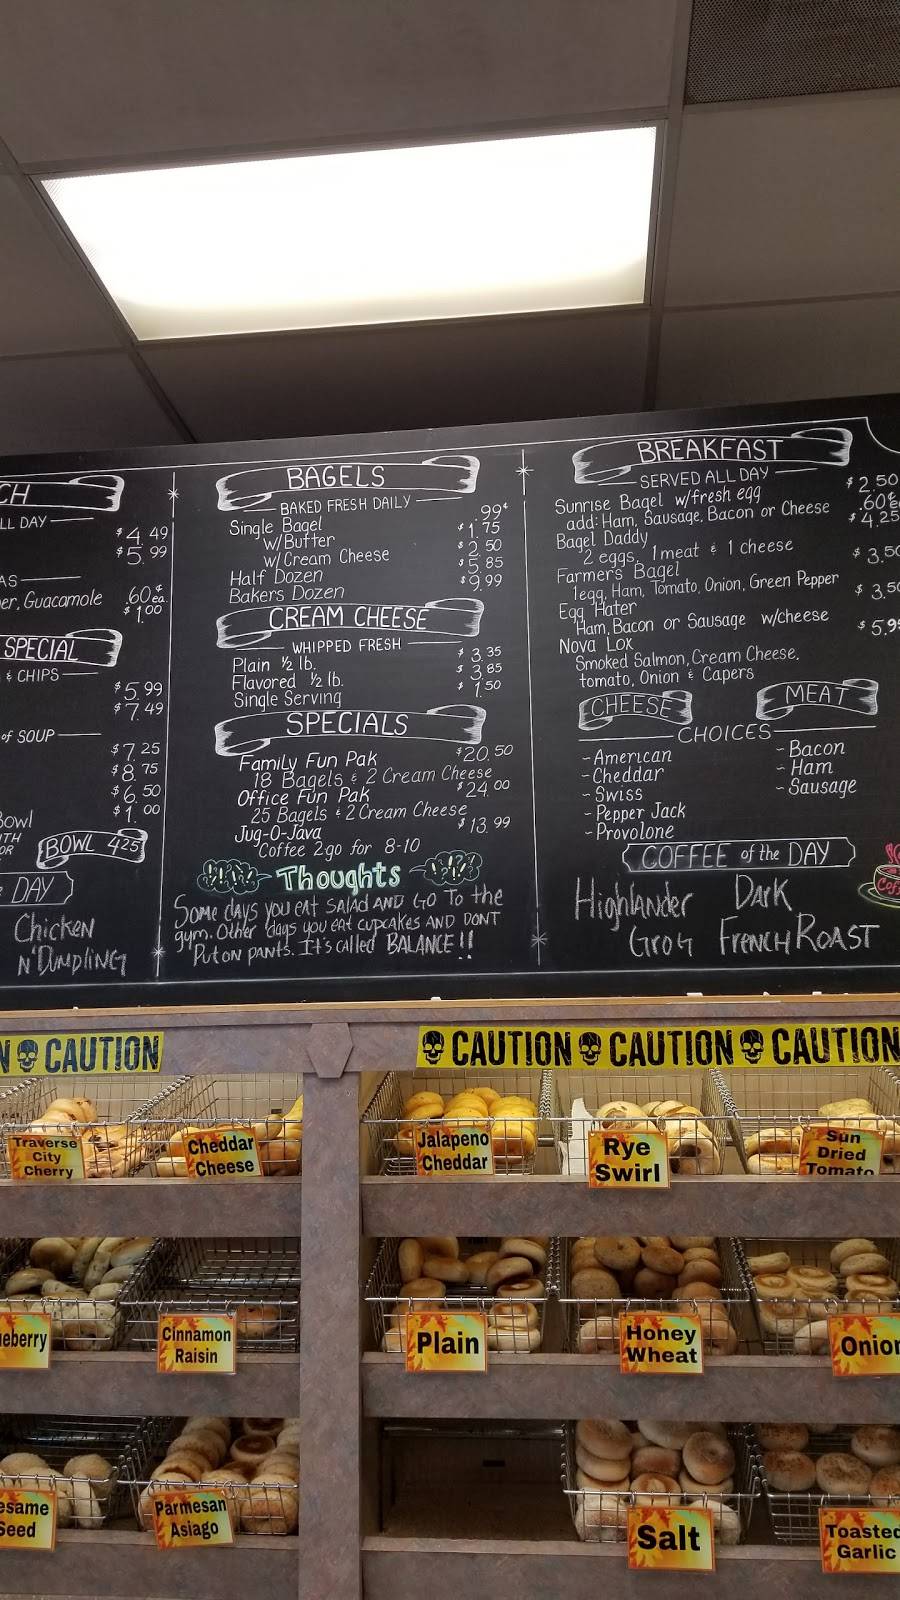 CH
LL DAY
$4.49
$5.99
AS
er, Guacamole .60¢ ea.
$1.00
SPECIAL
& CHIPS
$5.99
$7.49
of SOUP
$7.25
$8.75
$6.50
Bowl $1.00
ITH
OR
BOWL 4.25
DAY
Chicken
N' Dumpling
BAGELS
BAKED FRESH DAILY
Single Bagel 99¢
w/Butter $1.75
w/Cream Cheese $2.50
Half Dozen $5.85
Bakers Dozen $9.99
CREAM CHEESE
WHIPPED FRESH
Plain ½ lb. $3.35
Flavored ½ lb. $3.85
Single Serving $1.50
SPECIALS
Family Fun Pak $20.50
18 Bagels & 2 Cream Cheese
Office Fun Pak $24.00
25 Bagels & 2 Cream Cheese
Jug-O-Java $13.99
Coffee 2go for 8-10
Thoughts
Some days you eat salad AND GO To the
gym. Other days you eat cupcakes AND DONT
Put on pants. It's called BALANCE!!
BREAKFAST
SERVED ALL DAY
Sunrise Bagel w/fresh egg $2.50
add: Ham, Sausage, Bacon or Cheese .60¢
Bagel Daddy $4.25
2 eggs, 1 meat & 1 cheese
Farmers' Bagel $3.50
1 egg, Ham, Tomato, Onion, Green Pepper
Egg Hater $3.50
Ham, Bacon or Sausage w/cheese
Nova Lox $5.9
Smoked Salmon, Cream Cheese,
tomato, Onion & Capers
CHEESE MEAT
CHOICES
- American
- Cheddar
- Swiss
- Pepper Jack
- Provolone
- Bacon
- Ham
- Sausage
COFFEE of the DAY
Highlander
Grog
Dark
FRENCH ROAST
N CAUTION
CAUTION CAUTION CAUTION
Traverse
City
Cherry
Cheddar
Cheese
Jalapeno
Cheddar
Rye
Swirl
Sun
Dried
Tomato
ueberry
Cinnamon
Raisin
Plain
Honey
Wheat
Onion
esame
Seed
Parmesan
Asiago
Salt
Toasted
Garlic